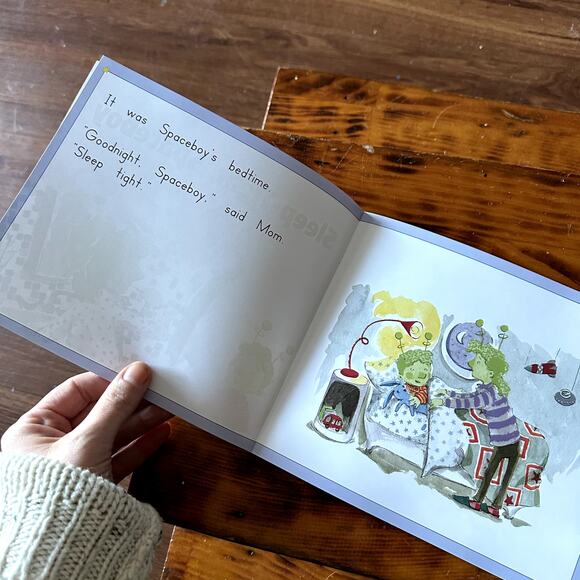 It was Spaceboy's bedtime.
"Goodnight, Spaceboy," said Mom.
"Sleep tight."
Sleep